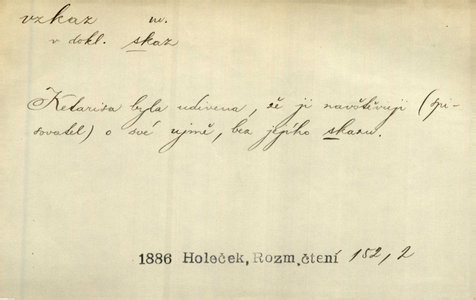 vzkaz m.
v dokl. skaz
Ketarisa byla udivena, že ji navštěvuji (spi-
sovatel) o své ujmě, bez jejího skazu.
1886 Holeček, Rozm. čtení 152, 2